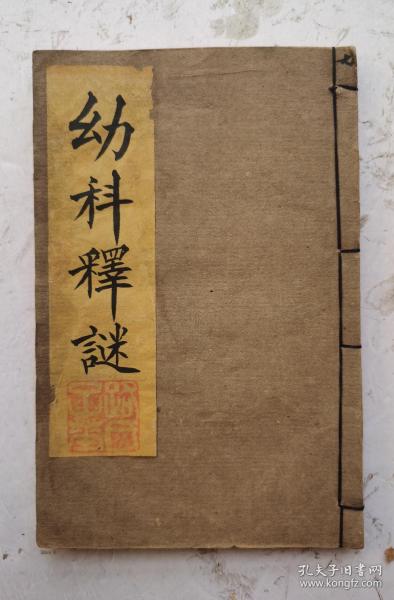 幼科釋謎
孔夫子旧书网
www.kongfz.com